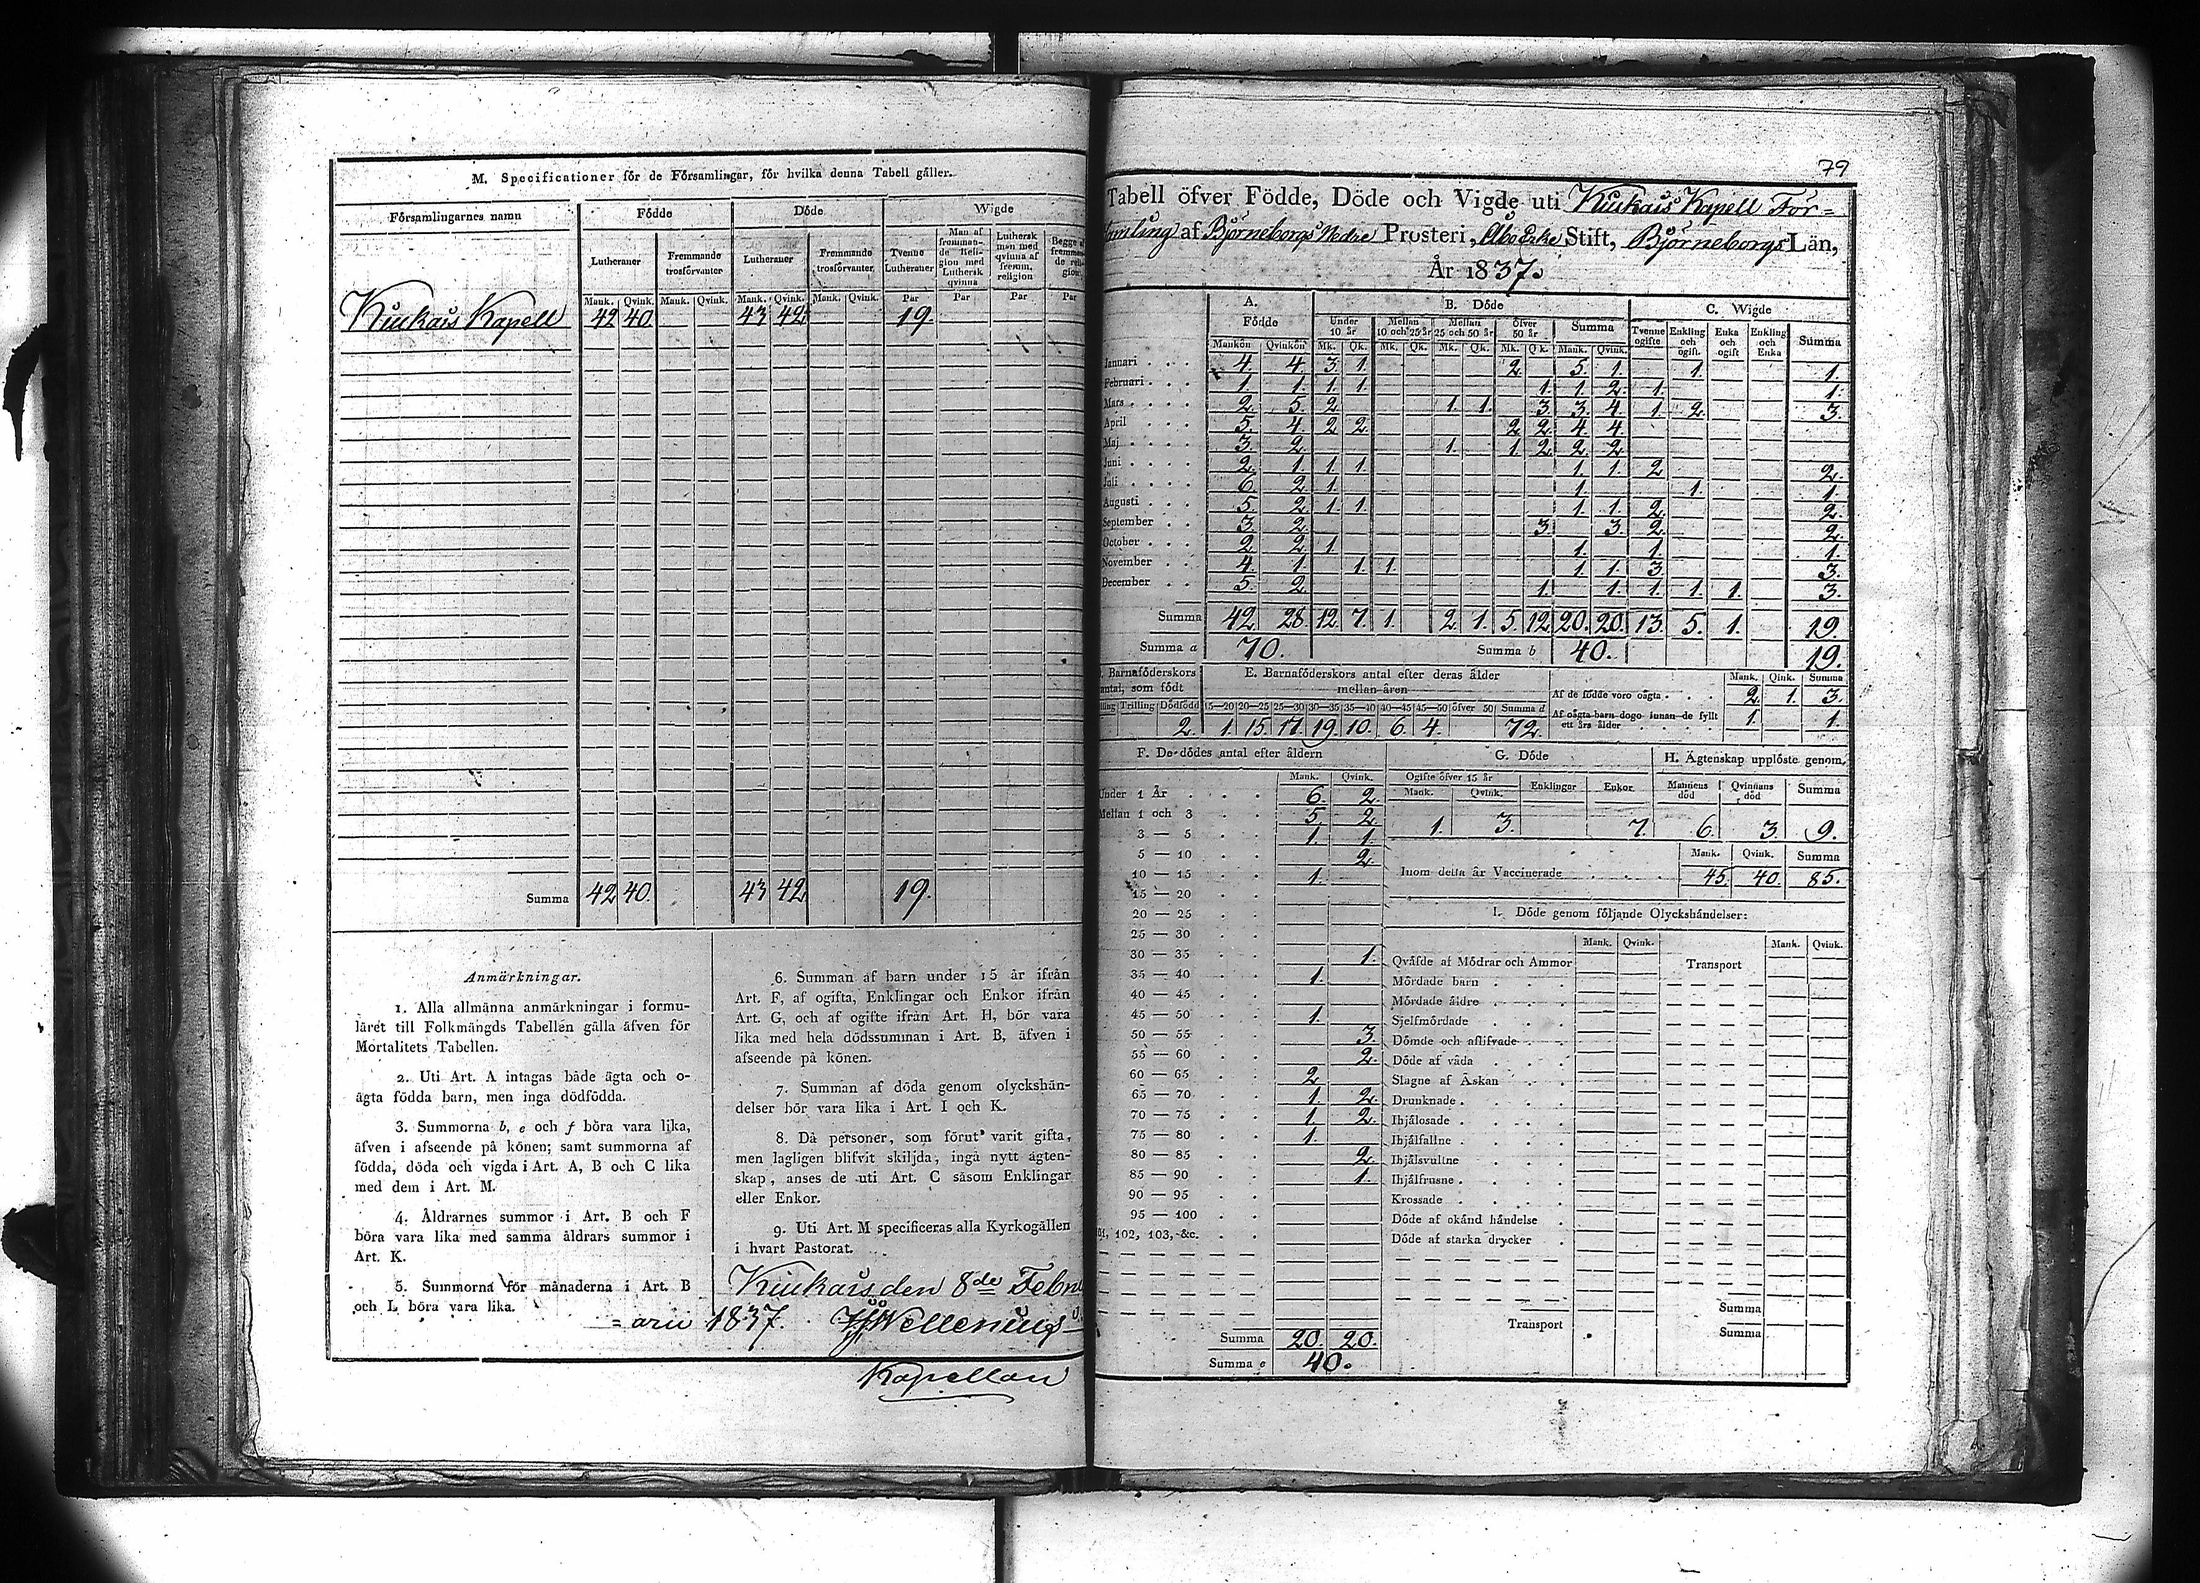 M. Specificationer för de Församlingar, för hvilka denna Tabell gäller.
Församlingarnes namn | Födde | Döde | Wigde
Lutheraner | Fremmande trosförvanter | Lutheraner | Fremmande trosförvanter | Tvenne Lutheraner | Man af fremmande Religion med Luthersk qvinna | Luthersk man med qvinna af fremm. religion | Begge af fremmande religion
Mank. Qvink. Mank. Qvink. Mank. Qvink. Mank. Qvink. Par Par Par Par
Kiukais Kapell 42 40. 43 42 19.
Summa 42 40. 43 42 19.
Anmärkningar.
1. Alla allmänna anmärkningar i formu-
läret till Folkmängds Tabellen gälla äfven för
Mortalitets Tabellen.
2. Uti Art. A intagas både ägta och o-
ägta födda barn, men inga dödfödda.
3. Summorna b, e och f böra vara lika,
äfven i afseende på könen; samt summorna af
födda, döda och vigda i Art. A, B och C lika
med dem i Art. M.
4. Åldrarnes summor i Art. B och F
böra vara lika med samma åldrars summor i
Art. K.
5. Summorna för månaderna i Art. B
och L böra vara lika.
6. Summan af barn under 15 år ifrån
Art. F, af ogifta, Enklingar och Enkor ifrån
Art. G, och af ogifte ifrån Art. H, bör vara
lika med hela dödssumman i Art. B, äfven i
afseende på könen.
7. Summan af döda genom olyckshän-
delser bör vara lika i Art. I och K.
8. Då personer, som förut varit gifta,
men lagligen blifvit skiljda, ingå nytt ägten-
skap, anses de uti Art. C såsom Enklingar
eller Enkor.
9. Uti Art. M specificeras alla Kyrkogällen
i hvart Pastorat.
Kiukais den 8de Febru
=arii 1837.
Kapellan
79
Tabell öfver Födde, Döde och Vigde uti Kiukais Kapell För=
samling af Björneborgs Nedre Prosteri, Åbo Erke Stift, Björneborgs Län,
År 1837.
A. Födde | B. Döde | C. Wigde
Under 10 år | Mellan 10 och 25 år | Mellan 25 och 50 år | Öfver 50 år | Summa | Tvenne ogifte | Enkling och ogift | Enka och ogift | Enkling och Enka | Summa
Mankön Qvinkön Mk. Qk. Mk. Qk. Mk. Qk. Mk. Qk. Mank. Qvink.
Januari 4. 4. 3. 1. 2. 5. 1. 1. 1.
Februari 1. 1. 1. 1. 1. 1. 2. 1. 1.
Mars 2. 5. 2. 1. 1. 3. 3. 4. 1. 2. 3.
April 5. 4. 2. 2. 2. 2. 4. 4.
Maj 3. 2. 1. 1. 2. 2. 2.
Juni 2. 1. 1. 1. 1. 1. 2. 2.
Juli 6. 2. 1. 1. 1. 1.
Augusti 5. 2. 1. 1. 1. 1. 2. 2.
September 3. 2. 3. 3. 2. 2.
October 2. 2. 1. 1. 1. 1.
November 4. 1. 1. 1. 1. 1. 3. 3.
December 5. 2. 1. 1. 1. 1. 1. 3.
Summa 42. 28. 12. 7. 1. 2. 1. 5. 12. 20. 20. 13. 5. 1. 19.
Summa a 70. Summa b 40. 19.
Barnaföderskors antal, som födt | E. Barnaföderskors antal efter deras ålder mellan åren | Mank. Qink. Summa
Trilling Dödfödd 15—20 20—25 25—30 30—35 35—40 40—45 45—50 öfver 50 Summa d
2. 1. 15. 17. 19. 10. 6. 4. 72.
Af de födde voro oägta 2. 1. 3.
Af oägta barn dogo innan de fyllt ett års ålder 1. 1.
F. De dödes antal efter åldern
Mank. Qvink.
Under 1 År 6. 2.
Mellan 1 och 3 5. 2.
3 — 5 1. 1.
5 — 10 2.
10 — 15 1.
15 — 20
20 — 25
25 — 30
30 — 35 1.
35 — 40 1.
40 — 45
45 — 50 1.
50 — 55 3.
55 — 60 2.
60 — 65 2.
65 — 70 1. 2.
70 — 75 1. 2.
75 — 80 1.
80 — 85 2.
85 — 90 1.
90 — 95
95 — 100
102, 103, &c.
Summa 20. 20.
Summa e 40.
G. Döde
Ogifte öfver 15 år | Enklingar | Enkor
Mank. Qvink.
1. 3. 7.
H. Ägtenskap upplöste genom
Mannens död | Qvinnans död | Summa
6. 3. 9.
Mank. Qvink. Summa
Inom detta år Vaccinerade 45. 40. 85.
I. Döde genom följande Olyckshändelser:
Mank. Qvink. Mank. Qvink.
Qväfde af Mödrar och Ammor Transport
Mördade barn
Mördade äldre
Sjelfmördade
Dömde och aflifvade
Döde af våda
Slagne af Åskan
Drunknade
Ihjälosade
Ihjälfallne
Ihjälsvultne
Ihjälfrusne
Krossade
Döde af okänd händelse
Döde af starka drycker
Summa
Transport Summa